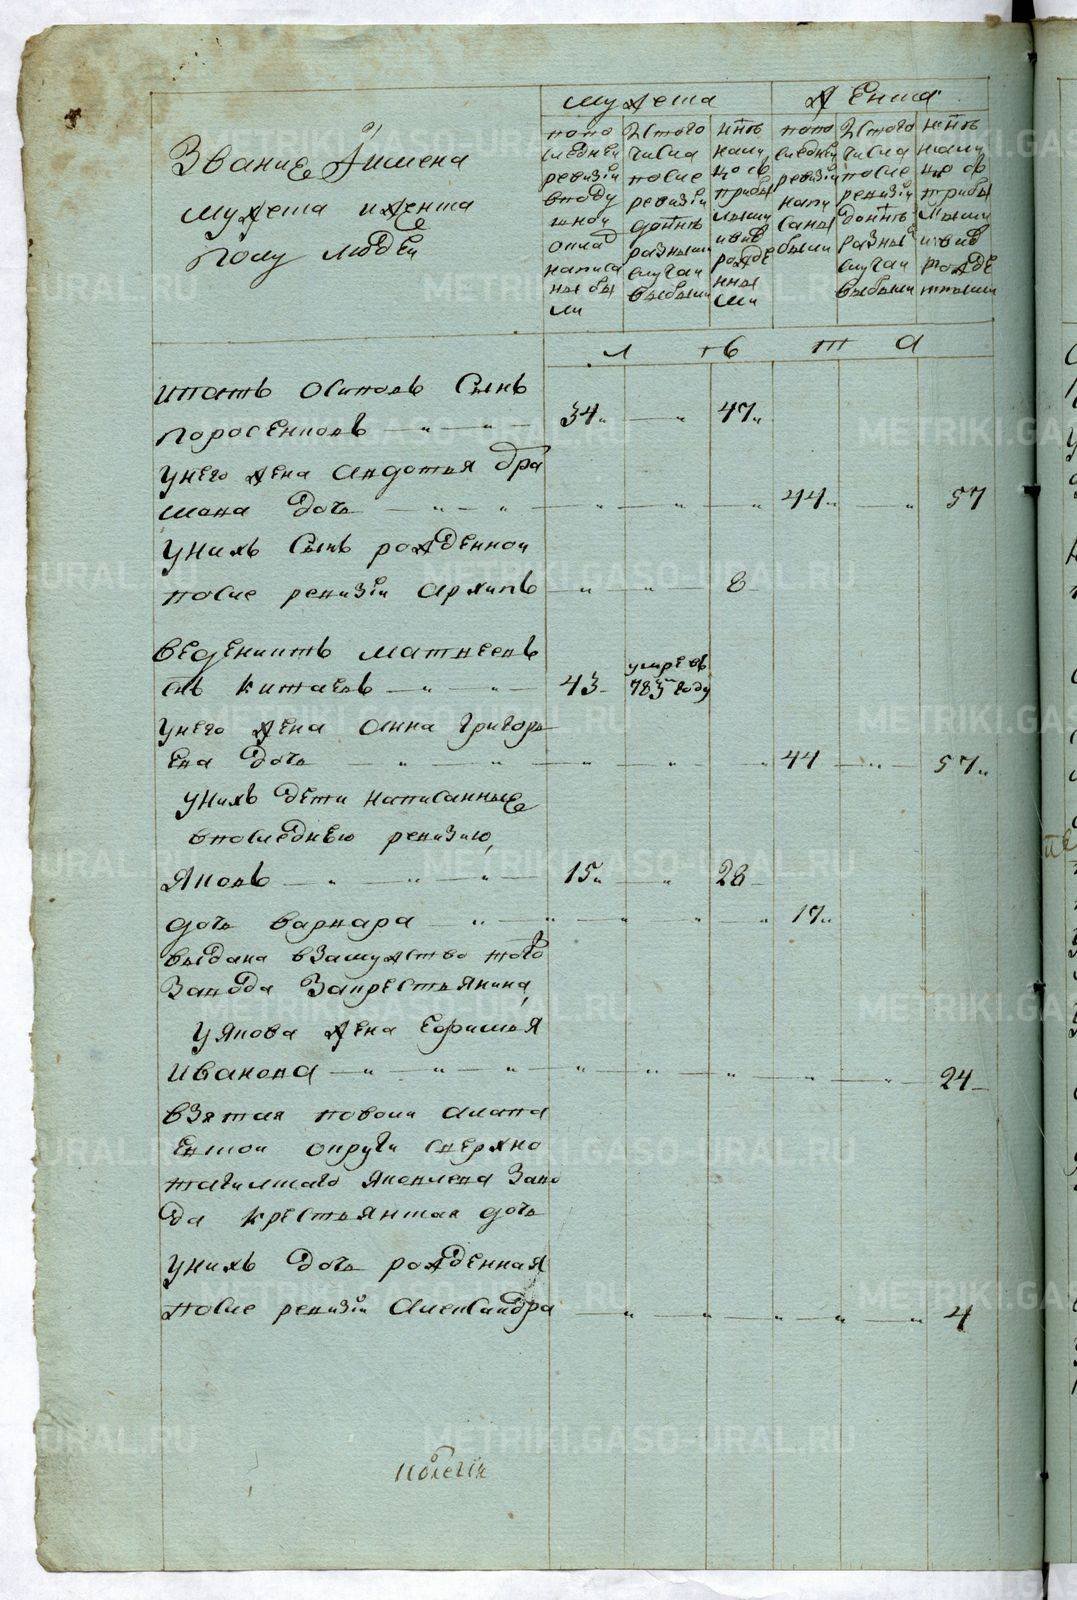 мужеска
женска
Звание и имена
мужеска и женска
полу людей
по по
следней
ревизии
в поду
шной
оклад
написа
ны бы
ли
Из того
числа
после
ревизии
до ныне
разными
случаи
выбыли
Ныне
нали
цо съ
прибы
лыми
и вновь
рожде
нны
ми
по по
следней
ревизии
напи
саны
были
Из того
числа
после
ревизии
до ныне
разны
случаи
выбыли
Ныне
нали
цо съ
прибы
лыми
и вновь
рожде
нными
л ѣ т а
Ипатъ Осиповъ сынъ
Поросенковъ 34 47
у него жена Авдотья
дочь 44 57
у нихъ сынъ рожденной
после ревизiи Архипъ 8
Веденихтъ Матвеевъ
снъ Китаевъ 43 умре въ 783м году
у него жена Анна Григорь
ева дочь 44 57
у нихъ дети написанные
в последнею ревизию
Яковъ 15 28
дочь Варвара 17
выдана в замужство того
завода за крестьянина
у Якова жена Ефимья
Иванова 24
взятая
округи с верхно
тагилскаго Яковлева заво
да крестьянская дочь
у нихъ дочь рожденная
после ревизiи Александра 4
METRIKI.GASO-URAL.RU